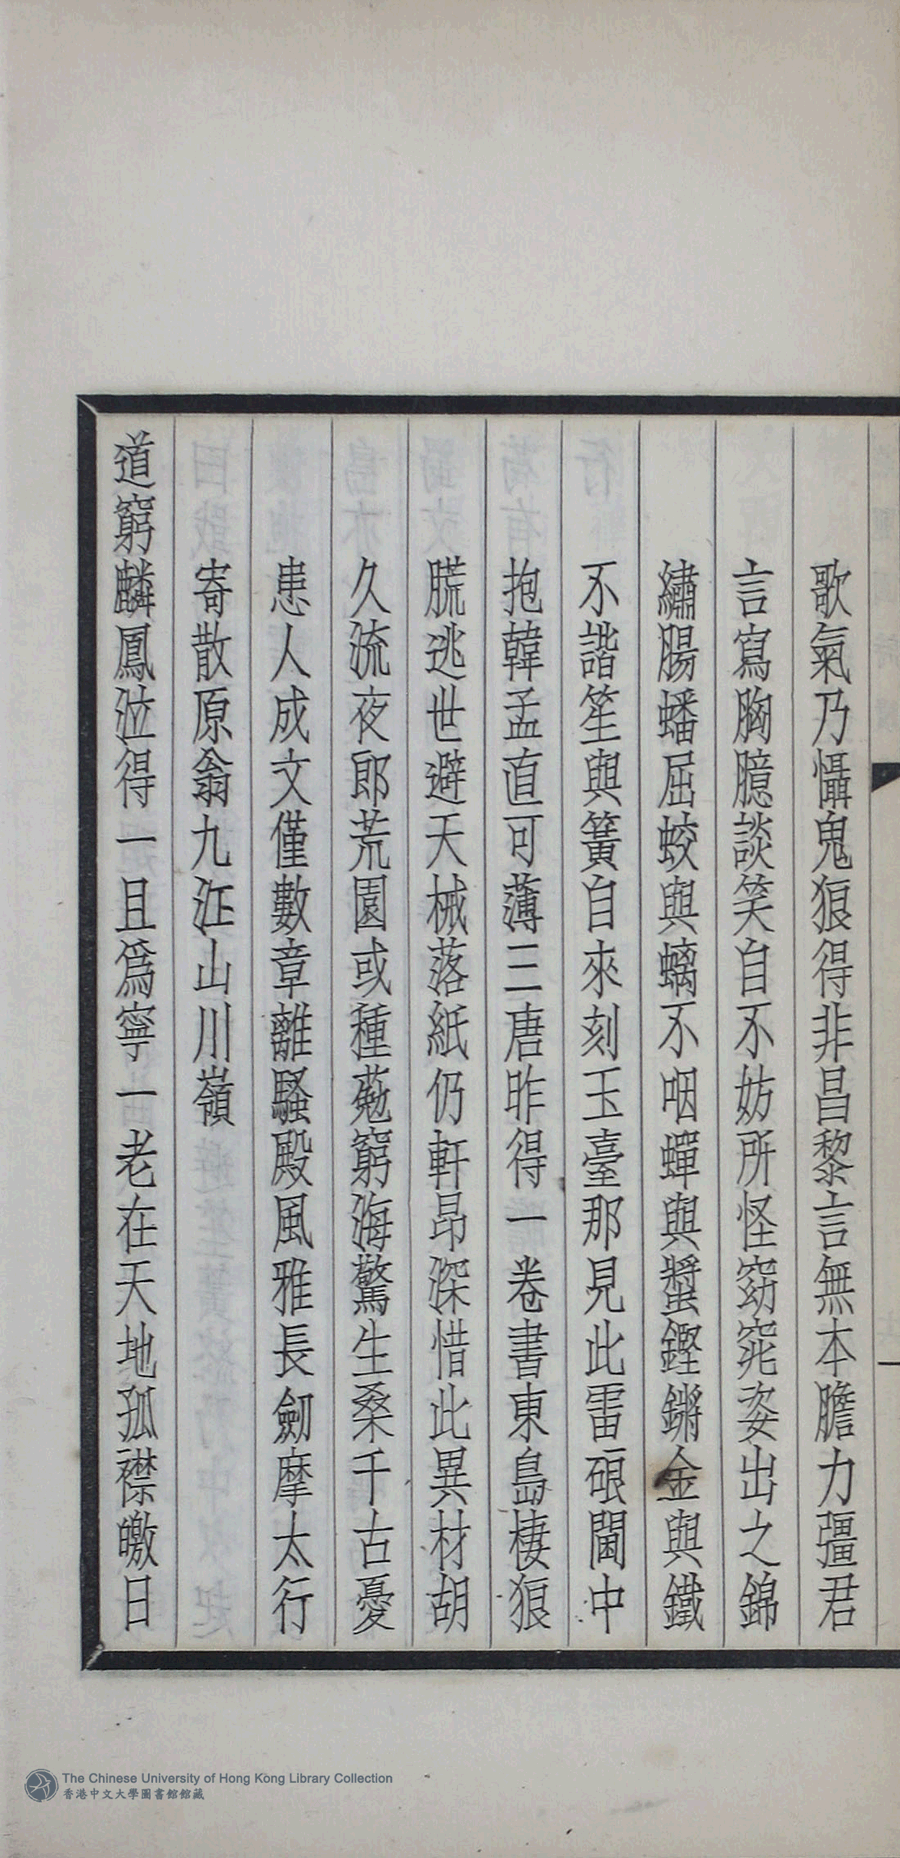 歌氣乃懾鬼狼得非昌黎言無本膽力彊君
言寫胸臆談笑自不妨所怪窈窕姿出之錦
繡腸蟠屈蛟與螭不咽蟬與螿鏗鏘金與鐵
不諧笙與簧自來刻玉臺那見此雷硠閫中
抱韓孟直可薄三唐昨得一卷書東島棲狼
㡃逃世避天械落紙仍軒昂深惜此異材胡
久流夜郎荒園或種蒐窮海驚生桑千古憂
患人成文僅數章離騷殿風雅長劒摩太行
寄散原翁九江山川嶺
道窮麟鳳泣得一且爲寧一老在天地孤襟皦日
The Chinese University of Hong Kong Library Collection
香港中文大學圖書館館藏